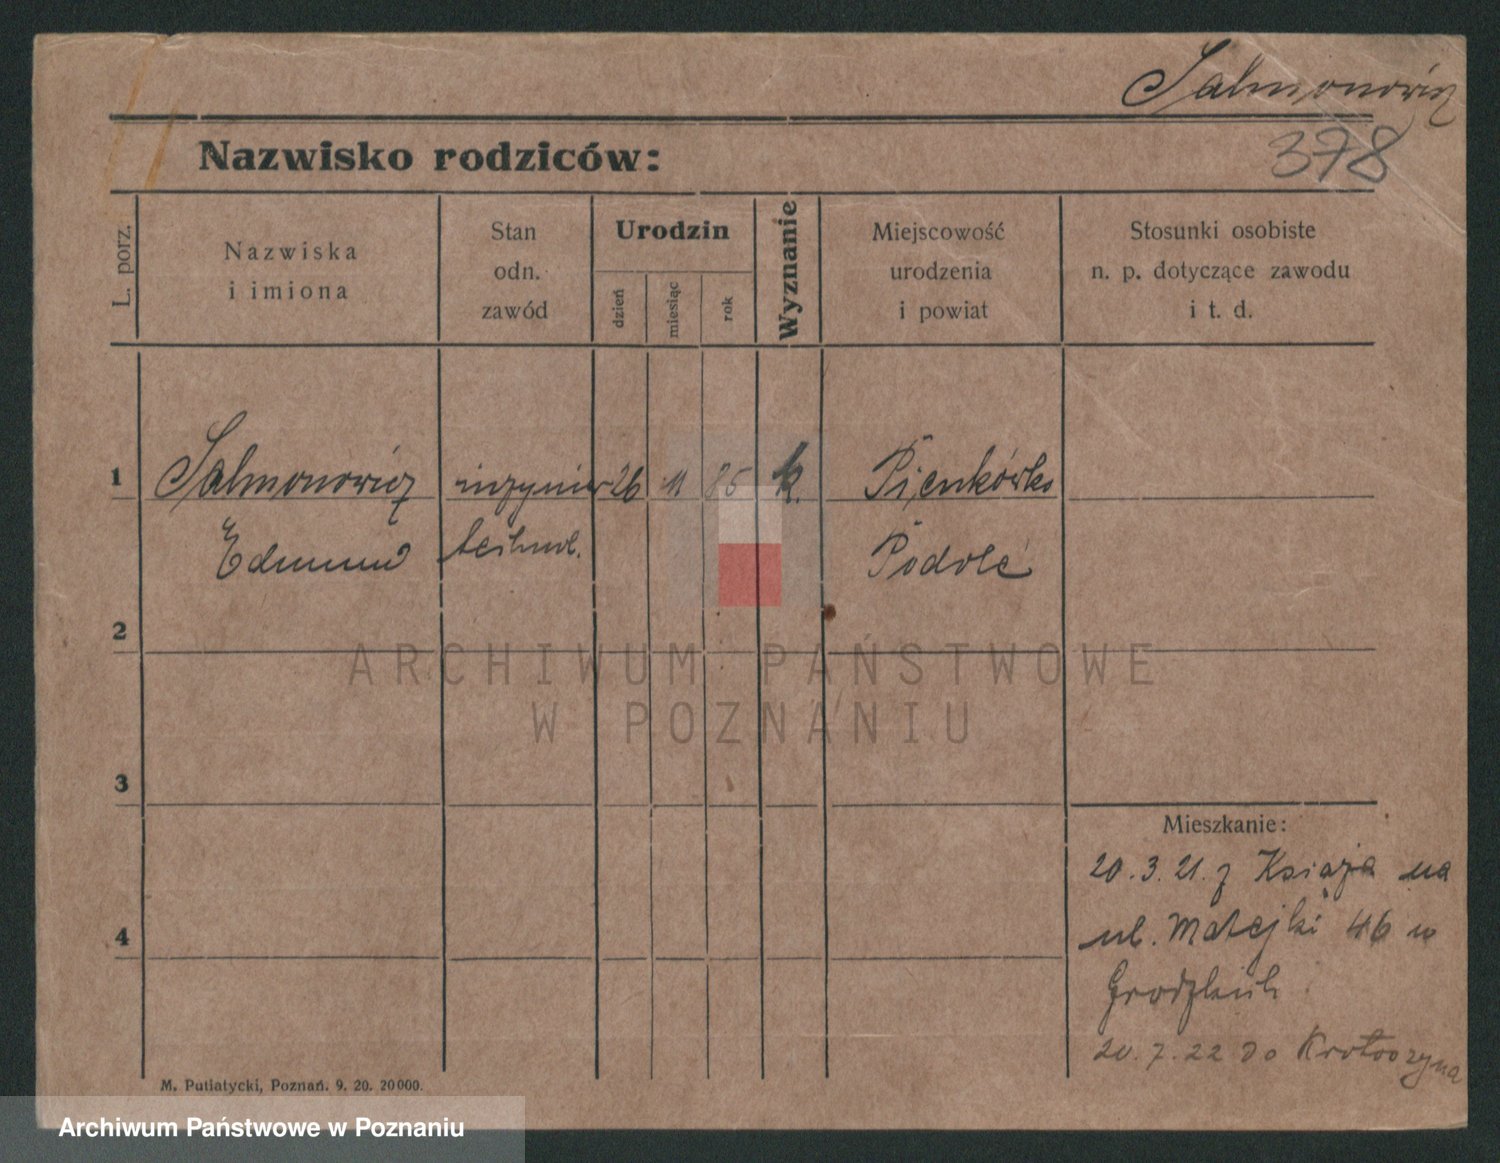 Salmonowicz
378
Nazwisko rodziców:
L. porz.
Nazwiska
i imiona
Stan
odn.
zawód
Urodzin
dzień
miesiąc
rok
Wyznanie
Miejscowość
urodzenia
i powiat
Stosunki osobiste
n. p. dotyczące zawodu
i t. d.
1
Salmonowicz inżynier 26 11 85 k. Pienkówko
Edmund technol. Podole
2
ARCHIWUM PAŃSTWOWE
W POZNANIU
3
Mieszkanie:
20.3.21. z Książa na
4
ul. Matejki 46 w
Grodzisk
20.7.22 do Krotoszyna
M. Putiatycki, Poznań. 9. 20. 20000.
Archiwum Państwowe w Poznaniu